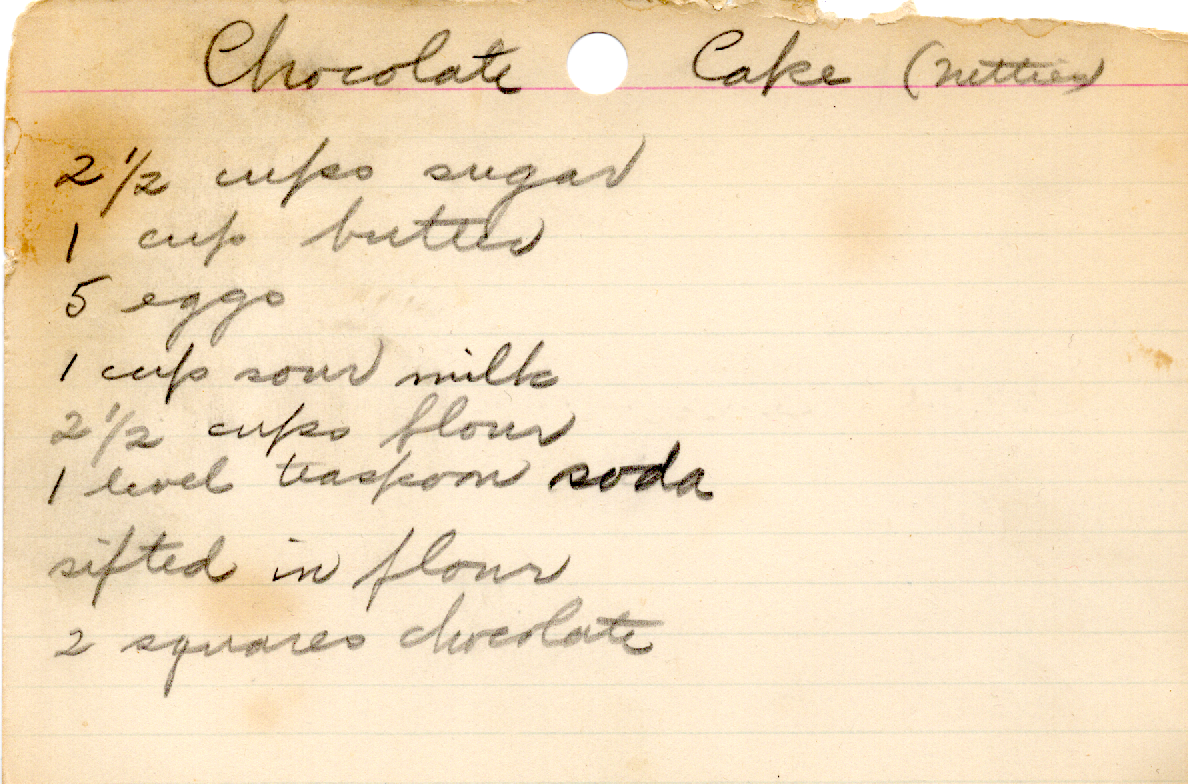 Chocolate Cake (Netties)
2 1/2 cups sugar
1 cup butter
5 eggs
1 cup sour milk
2 1/2 cups flour
1 level teaspoon soda
sifted in flour
2 squares chocolate